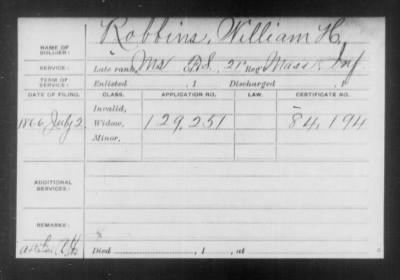 Robbins, William H.
NAME OF SOLDIER:
SERVICE: Late rank, Mus R.S. 2" Reg. Mass Inf
TERM OF SERVICE: Enlisted , 1 Discharged , 1
DATE OF FILING. CLASS. APPLICATION NO. LAW. CERTIFICATE NO.
Invalid,
1866 July 2 Widow, 129,251 84,194
Minor,
ADDITIONAL SERVICES:
REMARKS:
Died , 1 , at